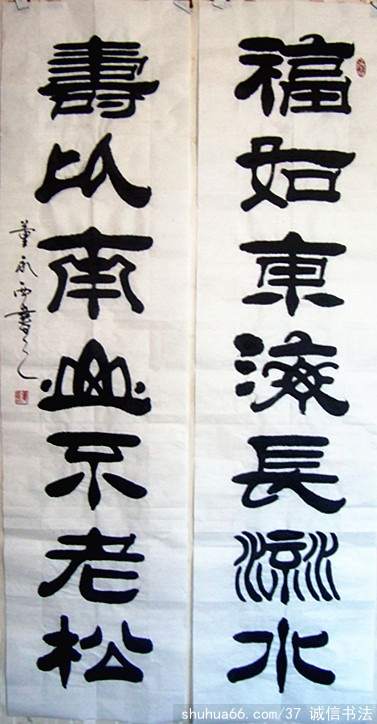 福如東海長流水
壽比南山不老松
董永西書之
shuhua66.com/37 诚信书法